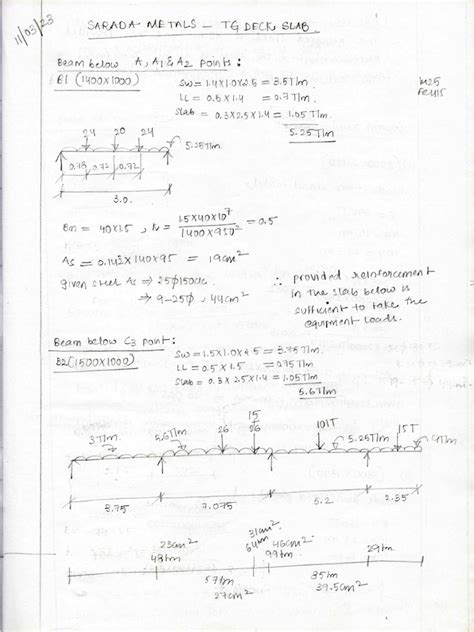 11/03/23
SARADA METALS - TG DECK SLAB
Beam below A, A1 & A2 points :
B1 (1400x1000)
SW = 1.4x1.0x2.5 = 3.5T/m
LL = 0.5x1.4 = 0.7T/m
Slab = 0.3x2.5x1.4 = 1.05T/m
5.25T/m
M25
Fe415
24 20 24
5.25T/m
0.78 0.72 0.72
3.0
Bm = 40x1.5, k = 1.5x40x10^7 / 1400x910^2 = 0.5
As = 0.142x140x95 = 19cm2
given steel As ⇒ 25φ150c/c
⇒ 9-25φ, 44cm2
∴ provided reinforcement
in the slab below is
sufficient to take the
equipment loads.
Beam below C3 point :
B2 (1500x1000)
SW = 1.5x1.0x2.5 = 3.75T/m
LL = 0.5x1.5 = 0.75T/m
Slab = 0.3x2.5x1.4 = 1.05T/m
5.6T/m
3T/m 5.6T/m 26 15 56 101T 5.25T/m 15T 9T/m
3.75 7.075 5.2 2.35
23cm2
48tm
31cm2
64tm
46cm2
99tm
29tm
57tm
27cm2
85tm
39.5cm2